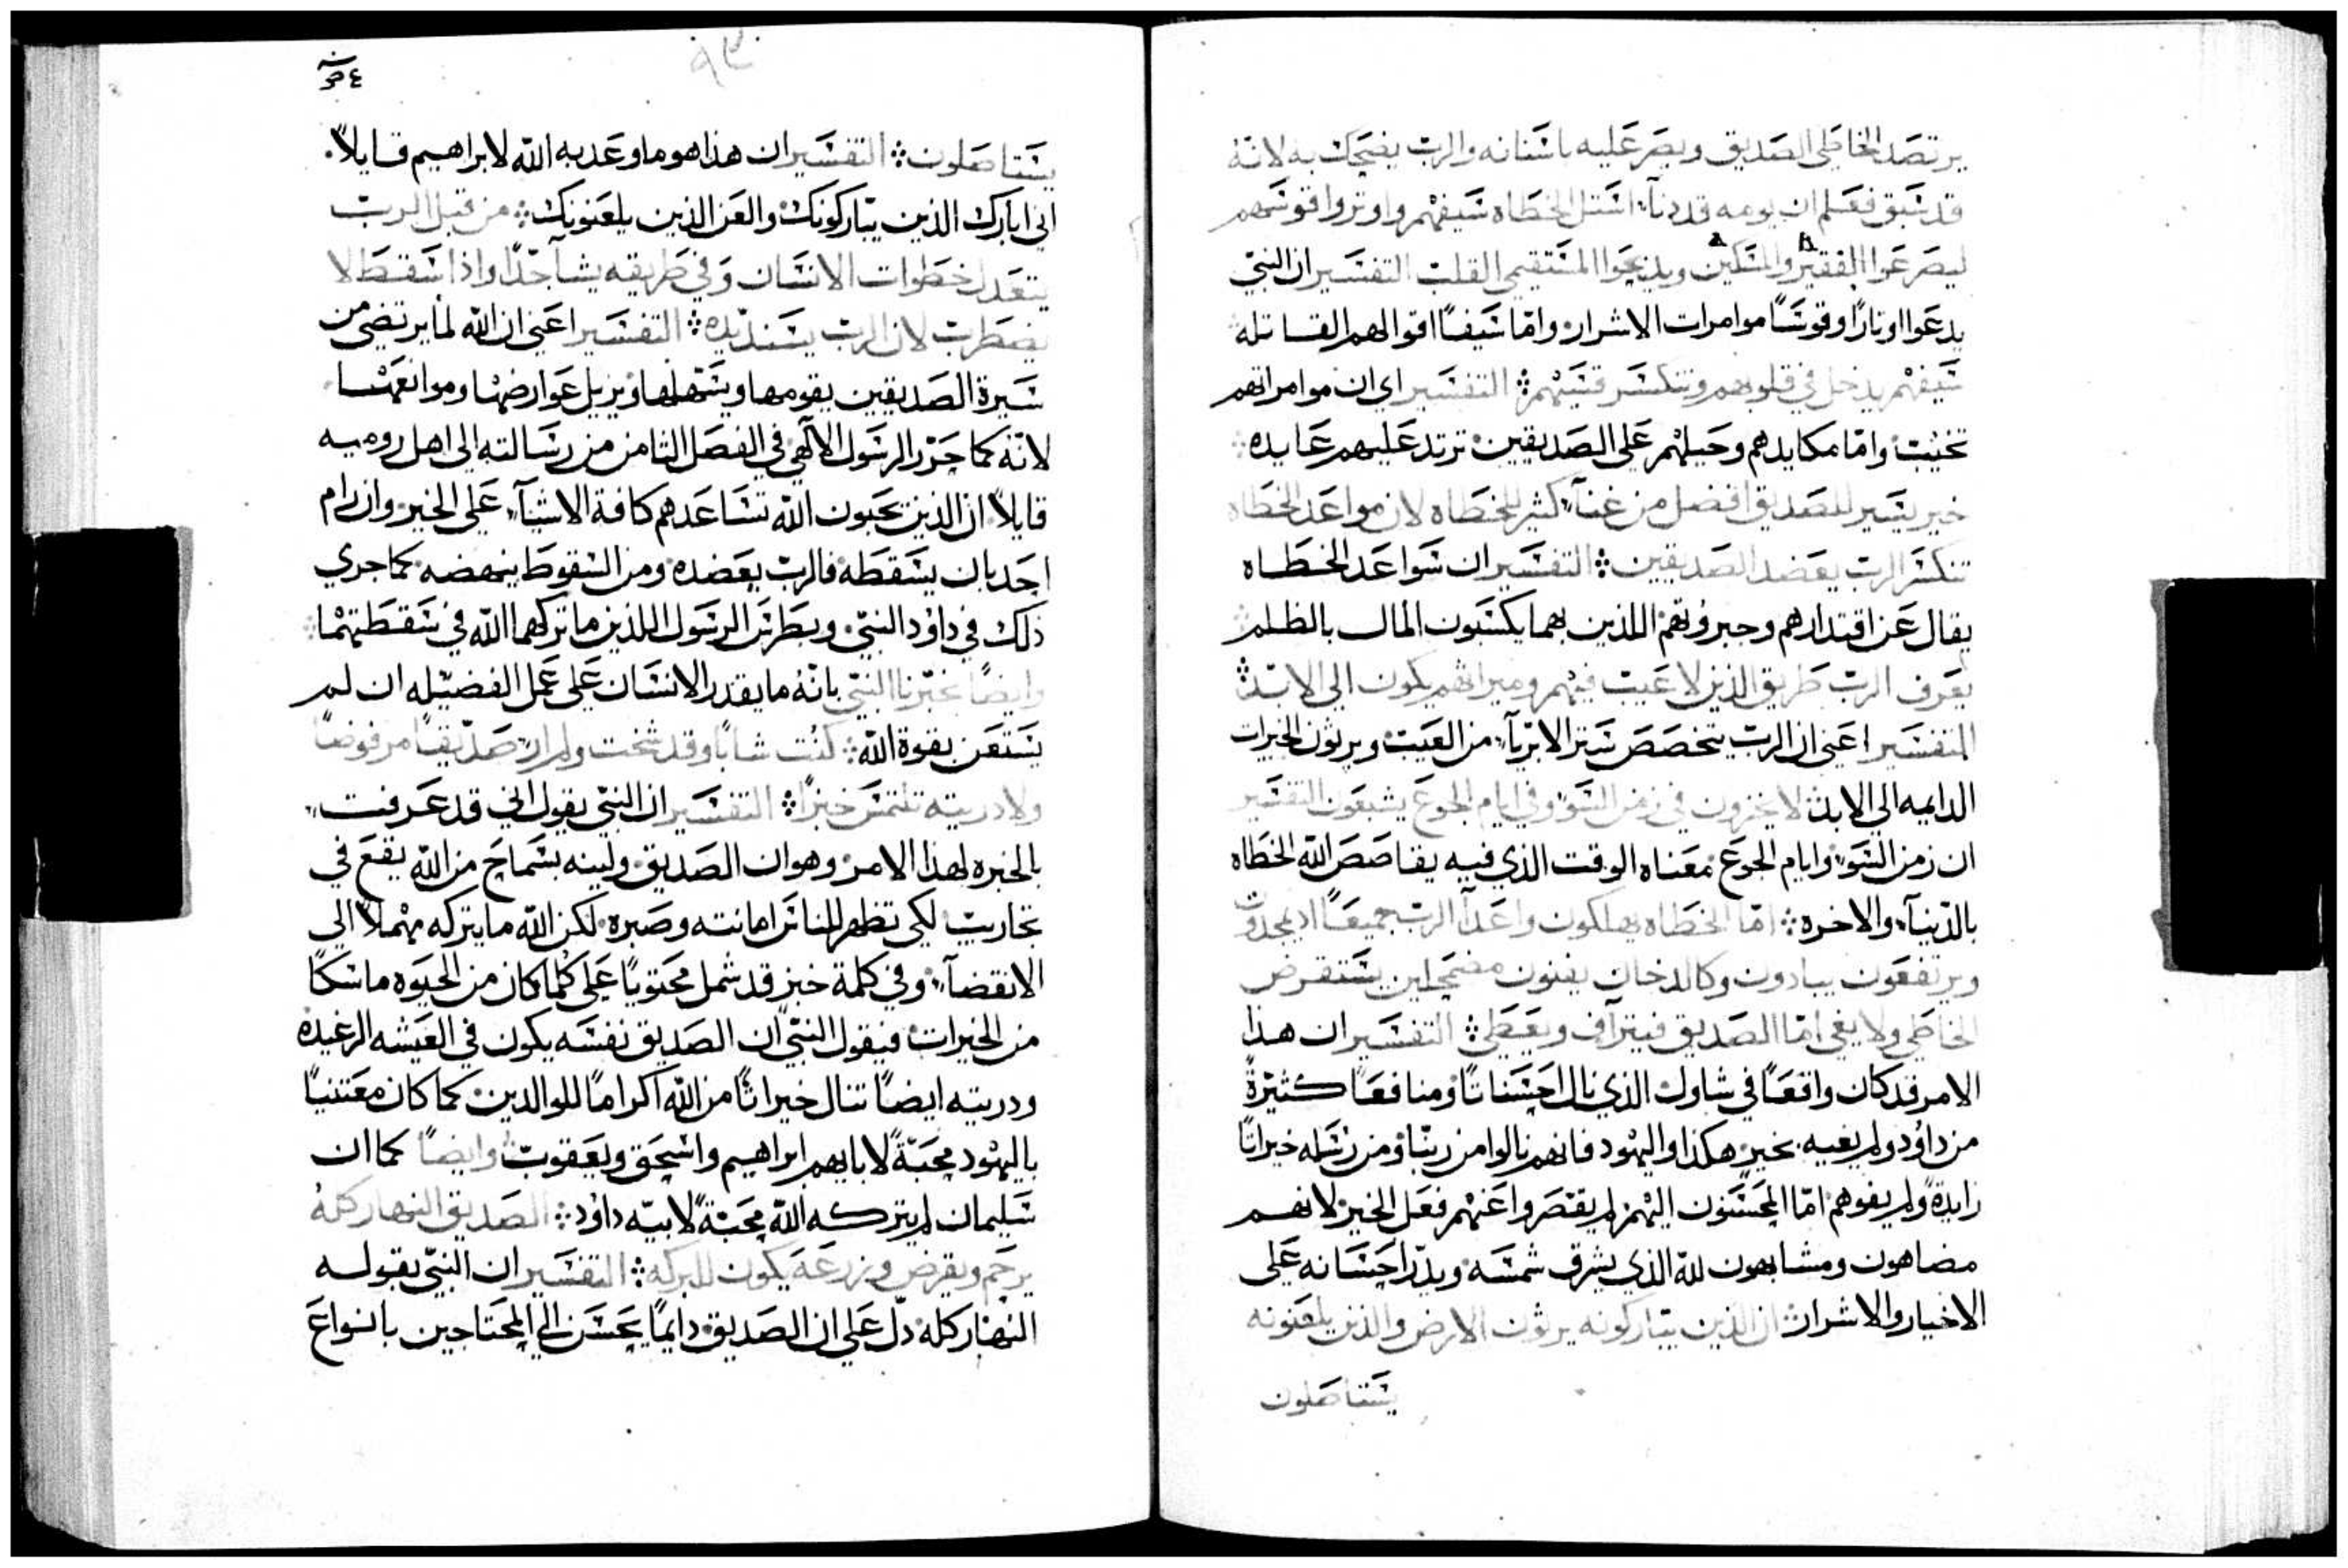 يرتصد الخاطي الصديق ويصر عليه باسنانه والرب يضحك به لانه
قد سبق فعلم ان يومه قد دنا استل الخطاه سيفهم واوتروا قوسهم
ليصرعوا الفقير والمسكين ويذبحوا المستقيمي القلب التفسير ان النبي
يدعوا اوتارًا وقوسًا موامرات الاشرار واما سيفًا اقوالهم القاتله
سيفهم يدخل في قلوبهم وتنكسر قسيهم التفسير اي ان موامراتهم
تخيب واما مكايدهم وحيلهم على الصديقين ترتد عليهم عايده
خير يسير للصديق افضل من غناء كثير للخطاه لان سواعد الخطاه
تنكسر الرب يعضد الصديقين التفسير ان سواعد الخطاه
يقال عن اقتدارهم وجبروتهم اللذين بهما يكسبون المال بالظلم
يعرف الرب طريق الذين لا عيب فيهم وميراثهم يكون الي الابد
التفسير اعني ان الرب يتخصص ستر الابرياء من العيب ويرثون الخيرات
الدايمه الي الابد لا يخزون في زمن السوء وفي ايام الجوع يشبعون التفسير
ان زمن السوء وايام الجوع معناه الوقت الذي فيه يقاصص الله الخطاه
بالدنياء والاخره اما الخطاه يهلكون واعداء الرب جميعًا اذ يمجدون
ويرتفعون يبادون وكالدخان يفنون مضمحلين يستقرض
الخاطي ولا يفي اما الصديق فيتراف ويعطي التفسير ان هذا
الامر قد كان واقعًا في شاول الذي نال احسانات ومنافعًا كثيرة
من داود ولم يفيه بخير هكذا واليهود فانهم نالوا من ربنا ومن رسله خيراتًا
زايدة ولم يفوهم اما المحسنون اليهم لم يقصروا عنهم فعل الخير لانهم
مضاهون ومشابهون لله الذي يشرق شمسه ويدر احسانه على
الاخيار والاشرار ان الذين يباركونه يرثون الارض والذين يلعنونه
يستاصلون
٩٣
يستاصلون التفسير ان هذا هو ما وعد به الله لابراهيم قايلاً
اني ابارك الذين يباركونك والعن الذين يلعنونك من قبل الرب
يتعدل خطوات الانسان وفي طريقه يشا جدًا واذا سقط لا
يضطرب لان الرب يسند يده التفسير اعني ان الله لما يرتضي من
سيرة الصديقين يقومها ويسهلها ويزيل عوارضها وموانعها
لانه كما حرر الرسول الالهي في الفصل الثامن من رسالته الى اهل روميه
قايلاً ان الذين يحبون الله تساعدهم كافة الاشياء على الخير وان رام
احد بان يسقطه فالرب يعضده ومن السقوط ينهضه كما جري
ذلك في داود النبي وبطرس الرسول اللذين ما تركهما الله في سقطتهما
وايضًا يخبرنا النبي بانه ما يقدر الانسان على عمل الفضيله ان لم
يستعن بقوة الله كنت شابًا وقد شخت ولم ار صديقًا مرفوضًا
ولا دريته تلتمس خبزًا التفسير ان النبي يقول اني قد عرفت
بالخبره لهذا الامر وهو ان الصديق ولينه بسماح من الله يقع في
تجاريب لكي تظهر للناس امانته وصبره لكن الله ما يتركه مهملاً الي
الانقضاء وفي كلمة خبز قد شمل محتويًا على كلما كان من الحيوه ماسكًا
من الخيرات فيقول النبي ان الصديق نفسه يكون في العيشه الرغيده
ودريته ايضًا تنال خيراتًا من الله اكرامًا للوالدين كما كان معتنيًا
باليهود محبةً لابايهم ابراهيم واسحق ويعقوب وايضًا كما ان
سليمان لم يتركه الله محبةً لابيه داود الصديق النهار كله
يرحم ويقرض وزرعه يكون للبركه التفسير ان النبي بقوله
النهار كله دل على ان الصديق دايمًا يحسن الي المحتاجين بانواع